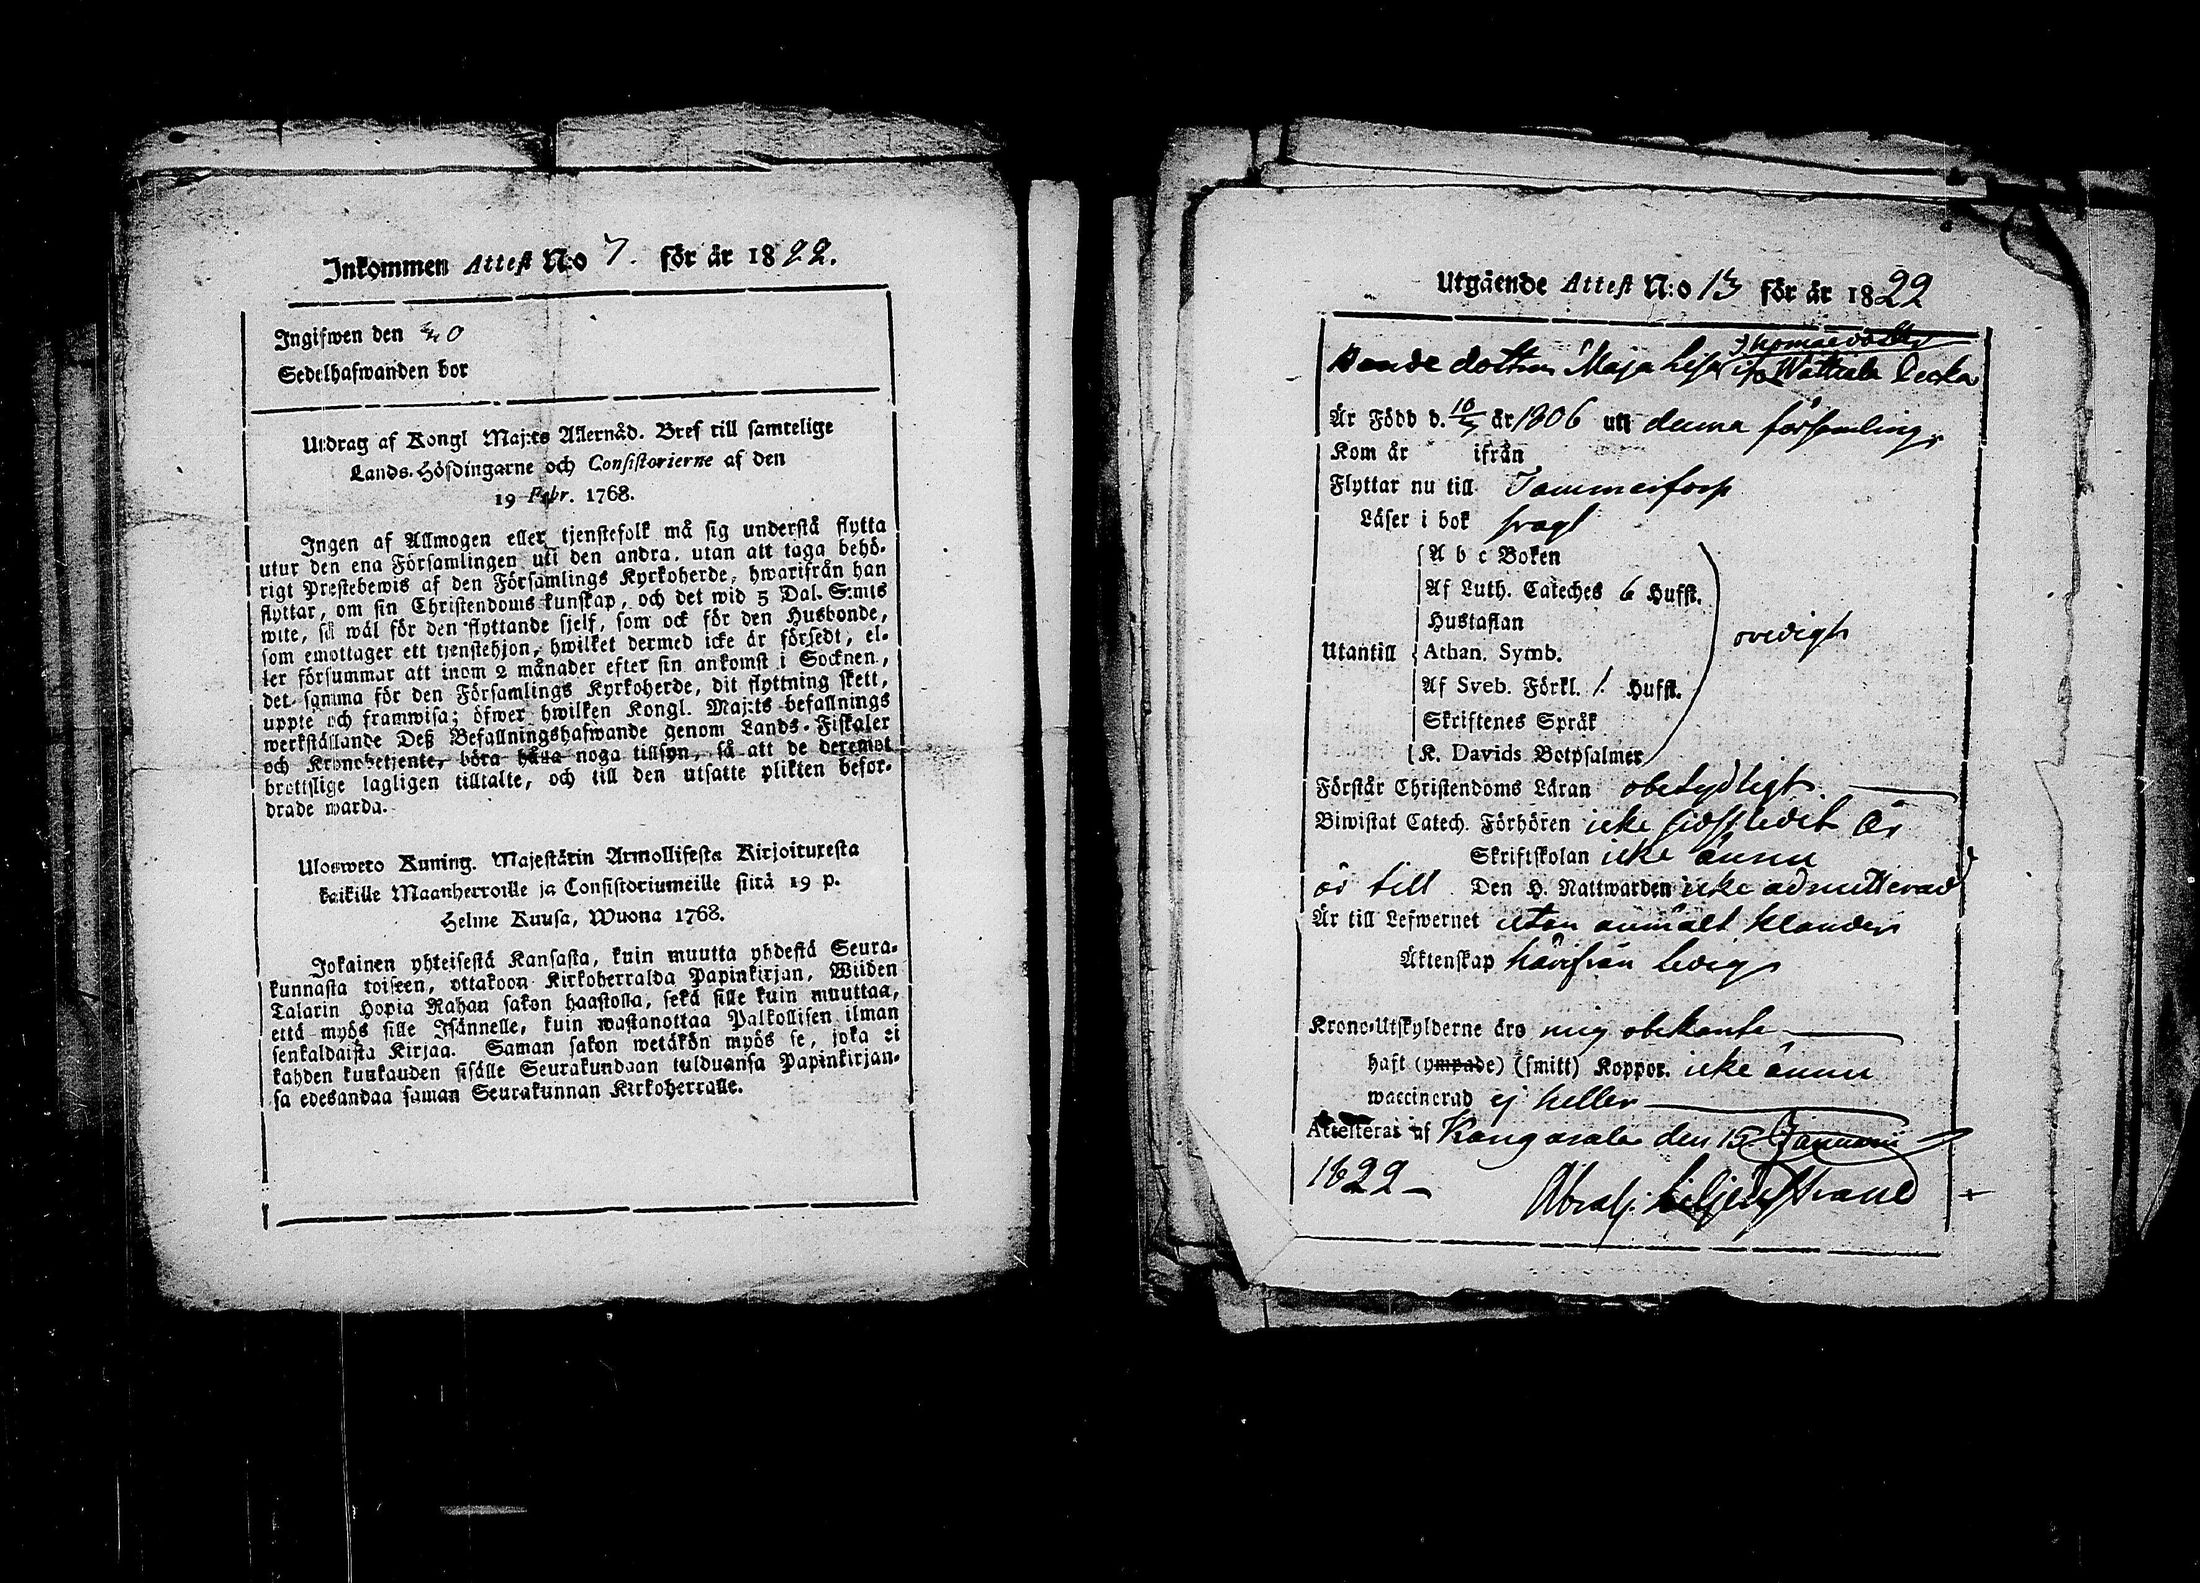 Inkommen Attest N:o 7. för år 1822.
Ingifwen den
Sedelhafwanden bor
Utdrag af Kongl Maj:ts Allernåd. Bref till samtelige
Lands-Höfdingarne och Consistorierne af den
19 Febr. 1768.
Ingen af Allmogen eller tjenstefolk må sig understå flytta
utur den ena Församlingen uti den andra, utan att taga behö-
rigt Prestebewis af den Församlings Kyrkoherde, hwarifrån han
flyttar, om sin Christendoms kunskap, och det wid 5 Dal. S:mts
wite, så wäl för den flyttande sjelf, som ock för den Husbonde,
som emottager ett tjenstehjon, hwilket dermed icke är försedt, el-
ler försummar att inom 2 månader efter sin ankomst i Socknen,
det samma för den Församlings Kyrkoherde, dit flyttning skett,
uppte och framwisa; öfwer hwilken Kongl. Maj:ts befallnings
werkställande Deß Befallningshafwande genom Lands-Fiskaler
och Kronobetjente, böra hålla noga tillsyn, så att de deremot
brottslige lagligen tilltalte, och till den utsatte plikten befor-
drade warda.
Ulosweto Kuning. Majestätin Armollisesta Kirjoituxesta
kaikille Maanherroille ja Consistoriumeille siitä 19 p.
Helme Kuusa, Wuona 1768.
Jokainen yhteisestä Kansasta, kuin muutta yhdestä Seura-
kunnasta toiseen, ottakoon Kirkoherralda Papinkirjan, Wiiden
Talarin Hopia Rahan sakon haastolla, sekä sille kuin muuttaa,
että myös sille Isännelle, kuin wastanottaa Palkollisen ilman
senkaldaista Kirjaa. Saman sakon wetäkön myös se, joka ei
kahden kuukauden sisälle Seurakundaan tulduansa Papinkirjan-
sa edesandaa saman Seurakunnan Kirkoherralle.
Utgående Attest N:o 13 för år 1822
Thomaedotter
Bonde dottren Maja Lisa ifr Wattiala Becka
Är Född d. 10/5 år 1806 uti denna församling
Kom år ifrån
Flyttar nu till Tammerfors
Läser i bok svagt
A b c Boken
Af Luth. Cateches 6 Hufst.
Hustaflan
Utantill Athan. Symb. ovedigt
Af Sveb. Förkl. 1. Hufst.
Skriftenes Språk
K. Davids Botpsalmer
Förstår Christendoms Läran obetydligt
Biwistat Catech. Förhören icke sidstledit År
Skriftskolan icke ännu
är till Den H. Nattwarden icke admitterad
Är till Lefwernet utan anmält klander
Äktenskap härifrån ledig
Krono-Utskylderne äro mig obekante
haft (ympade) (smitt) Koppor. icke ännu
waccinerad ej heller
Attesteras af Kangasala den 15 Januarii
1822
Abrah: Liljenstrand